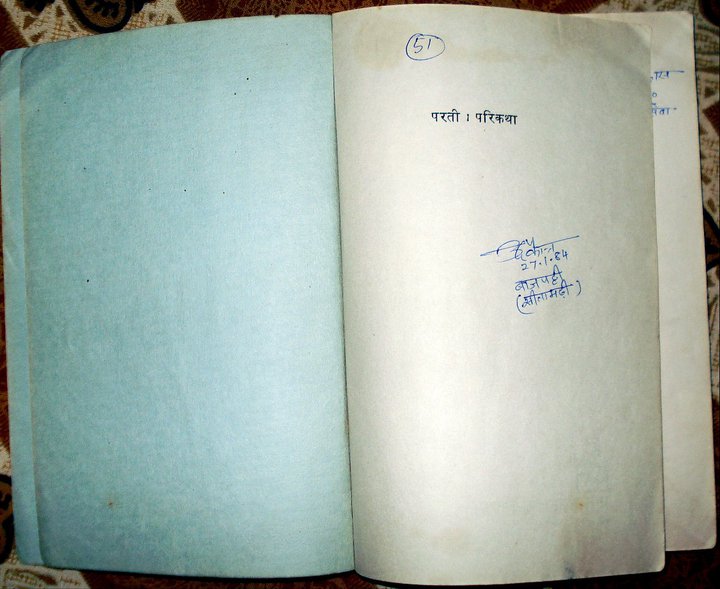 51
परती : परिकथा
27.1.84
बाजपट्टी
(सीतामढ़ी)